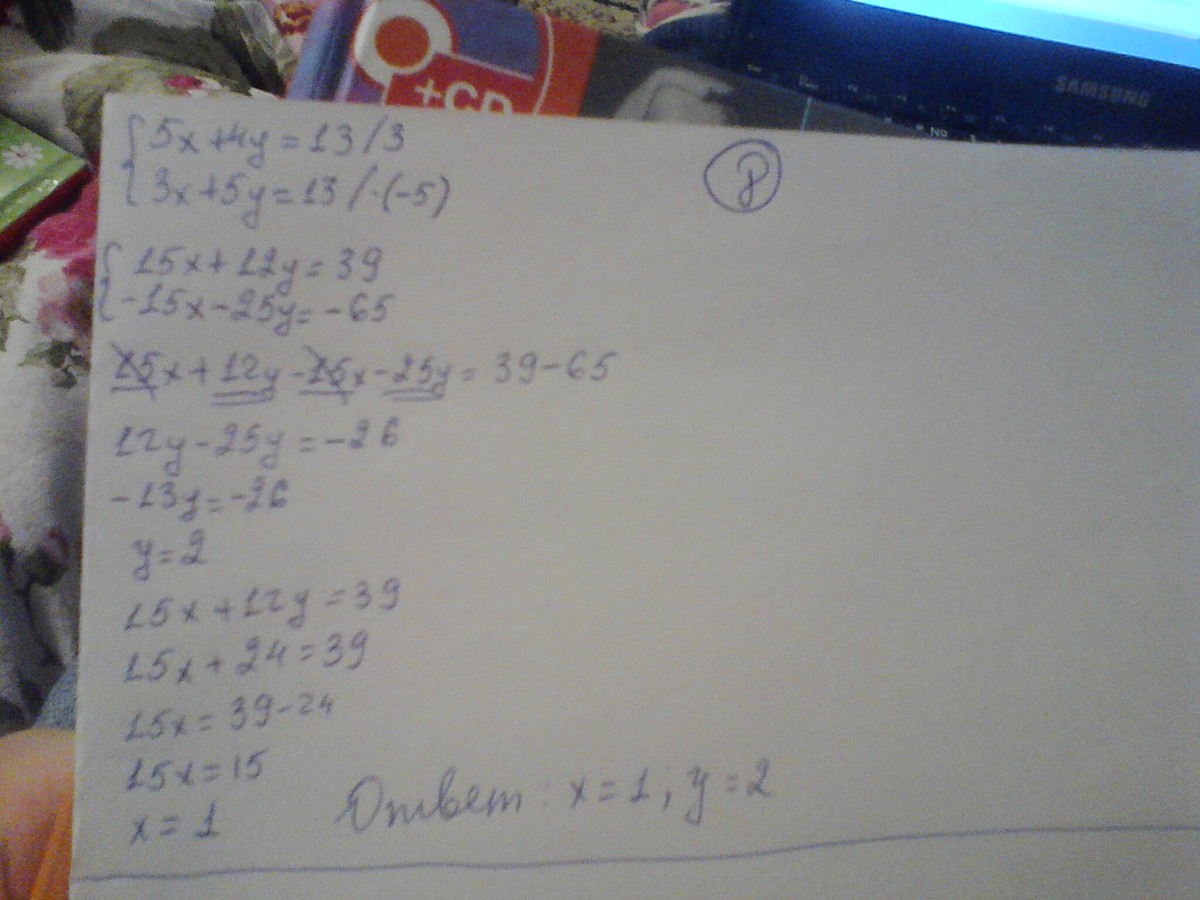 +CD
SAMSUNG
5x+4y=13/3
3x+5y=13/·(-5)
15x+12y=39
-15x-25y=-65
15x+12y-15x-25y=39-65
12y-25y=-26
-13y=-26
y=2
15x+12y=39
15x+24=39
15x=39-24
15x=15
x=1
Ответ: x=1; y=2